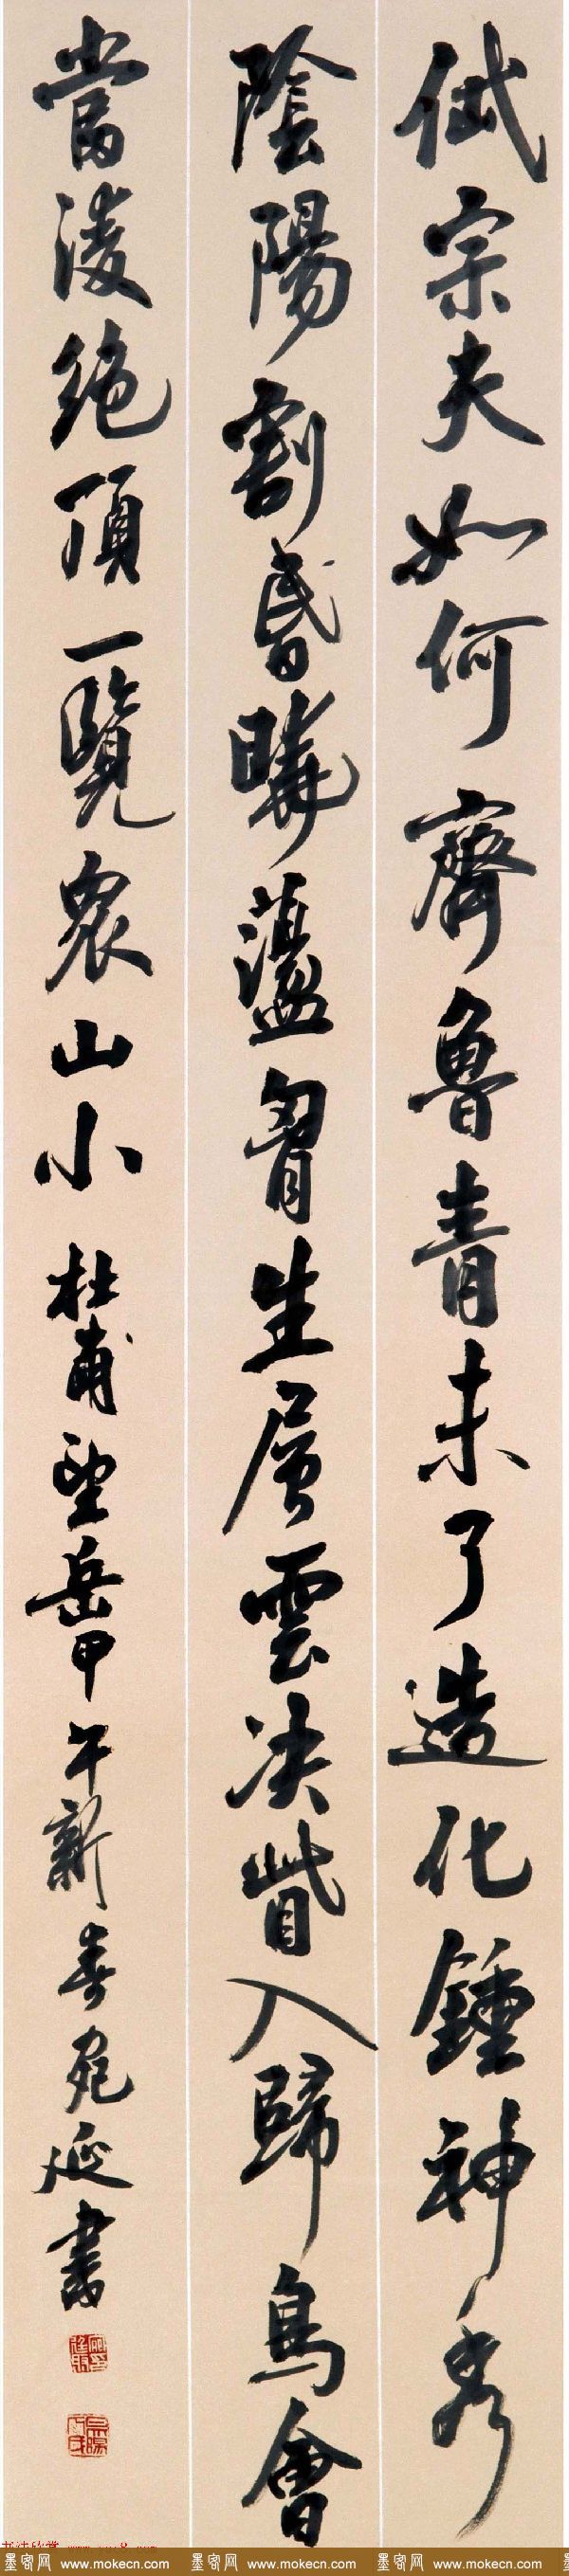 岱宗夫如何齊魯青未了造化鍾神秀
陰陽割昬曉蘯胷生層雲决眥入歸鳥會
當淩絶頂一覽衆山小 杜甫望岳甲午新春宛延書
墨客网 www.mokecn.com 墨客网 www.mokecn.com 墨客网 www.mokecn.com